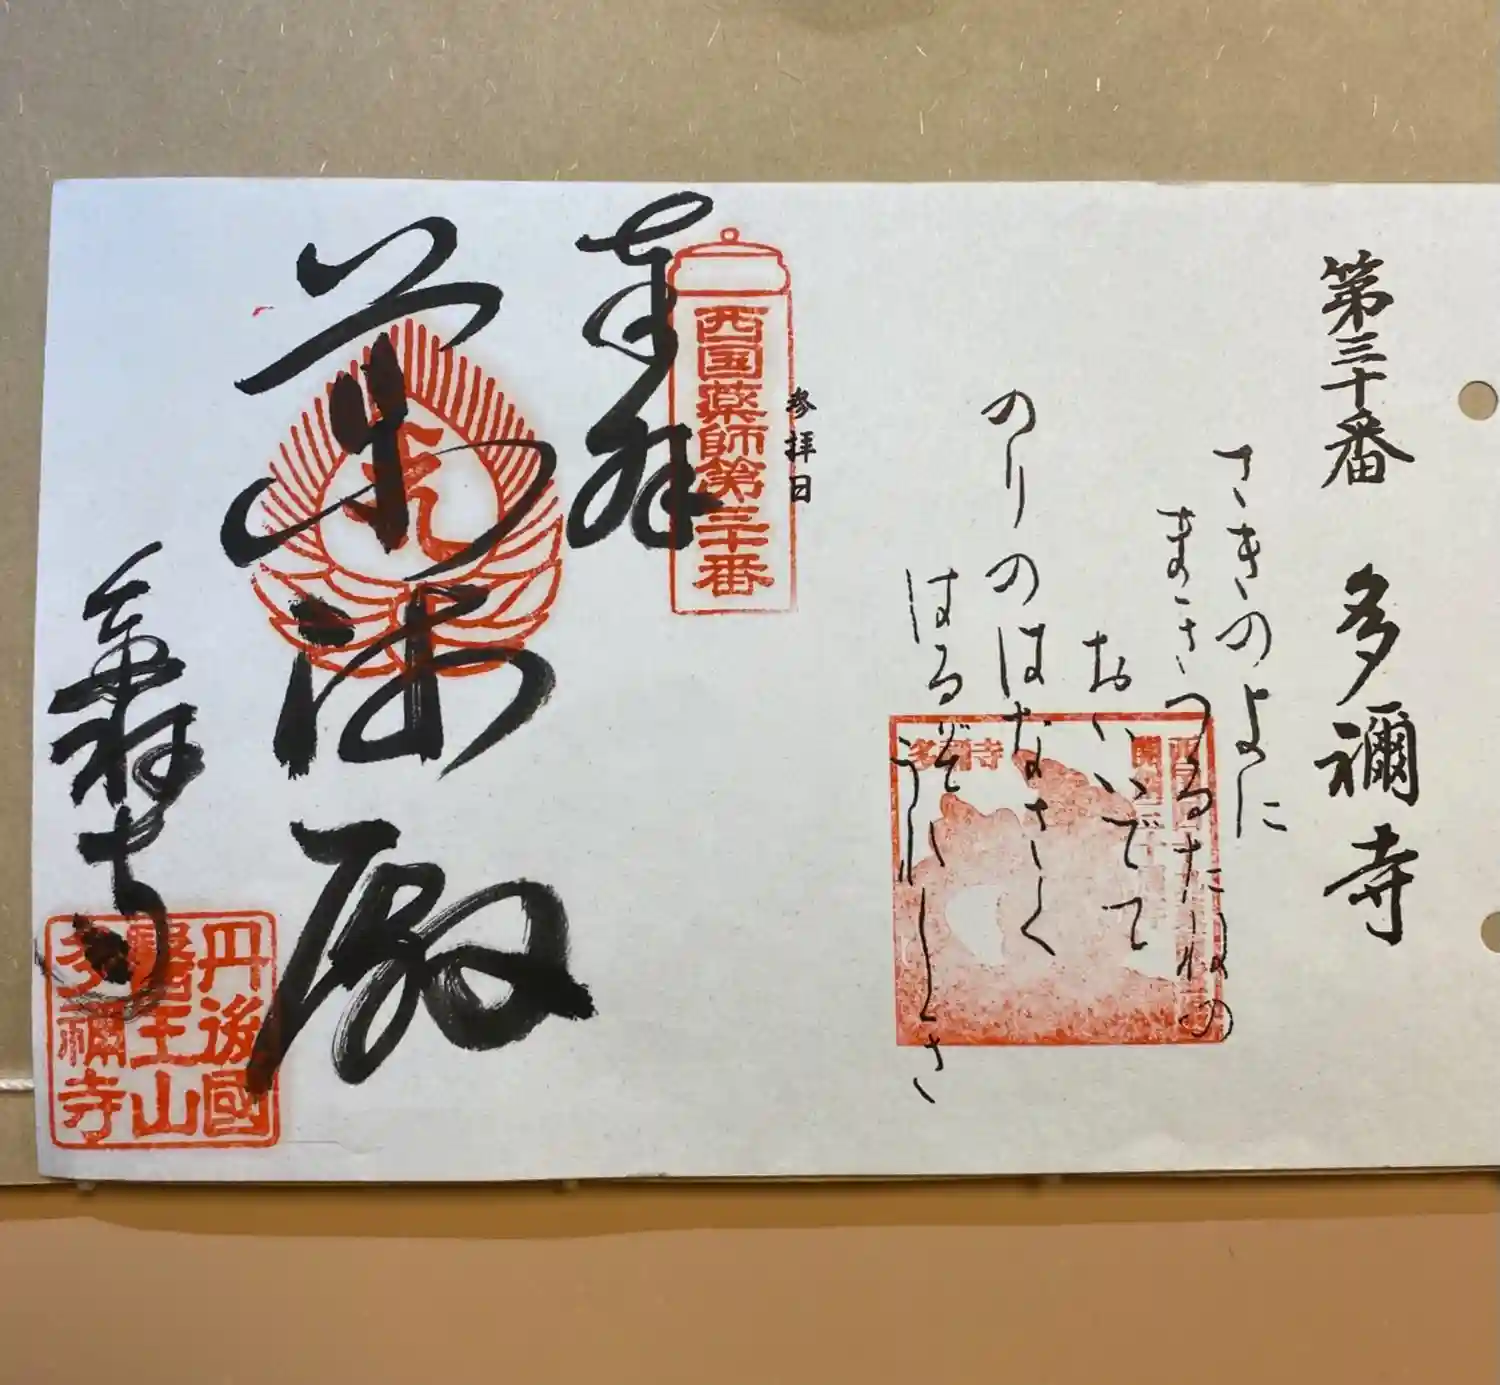 第三十番 多禰寺
さきのよに
まきつるたねの
おいいでて
のりのはなさく
はるぞうれしき
多禰寺
参拝日
西国薬師第三十番
奉拝
薬師殿
多禰寺
丹後國
醫王山
多禰寺